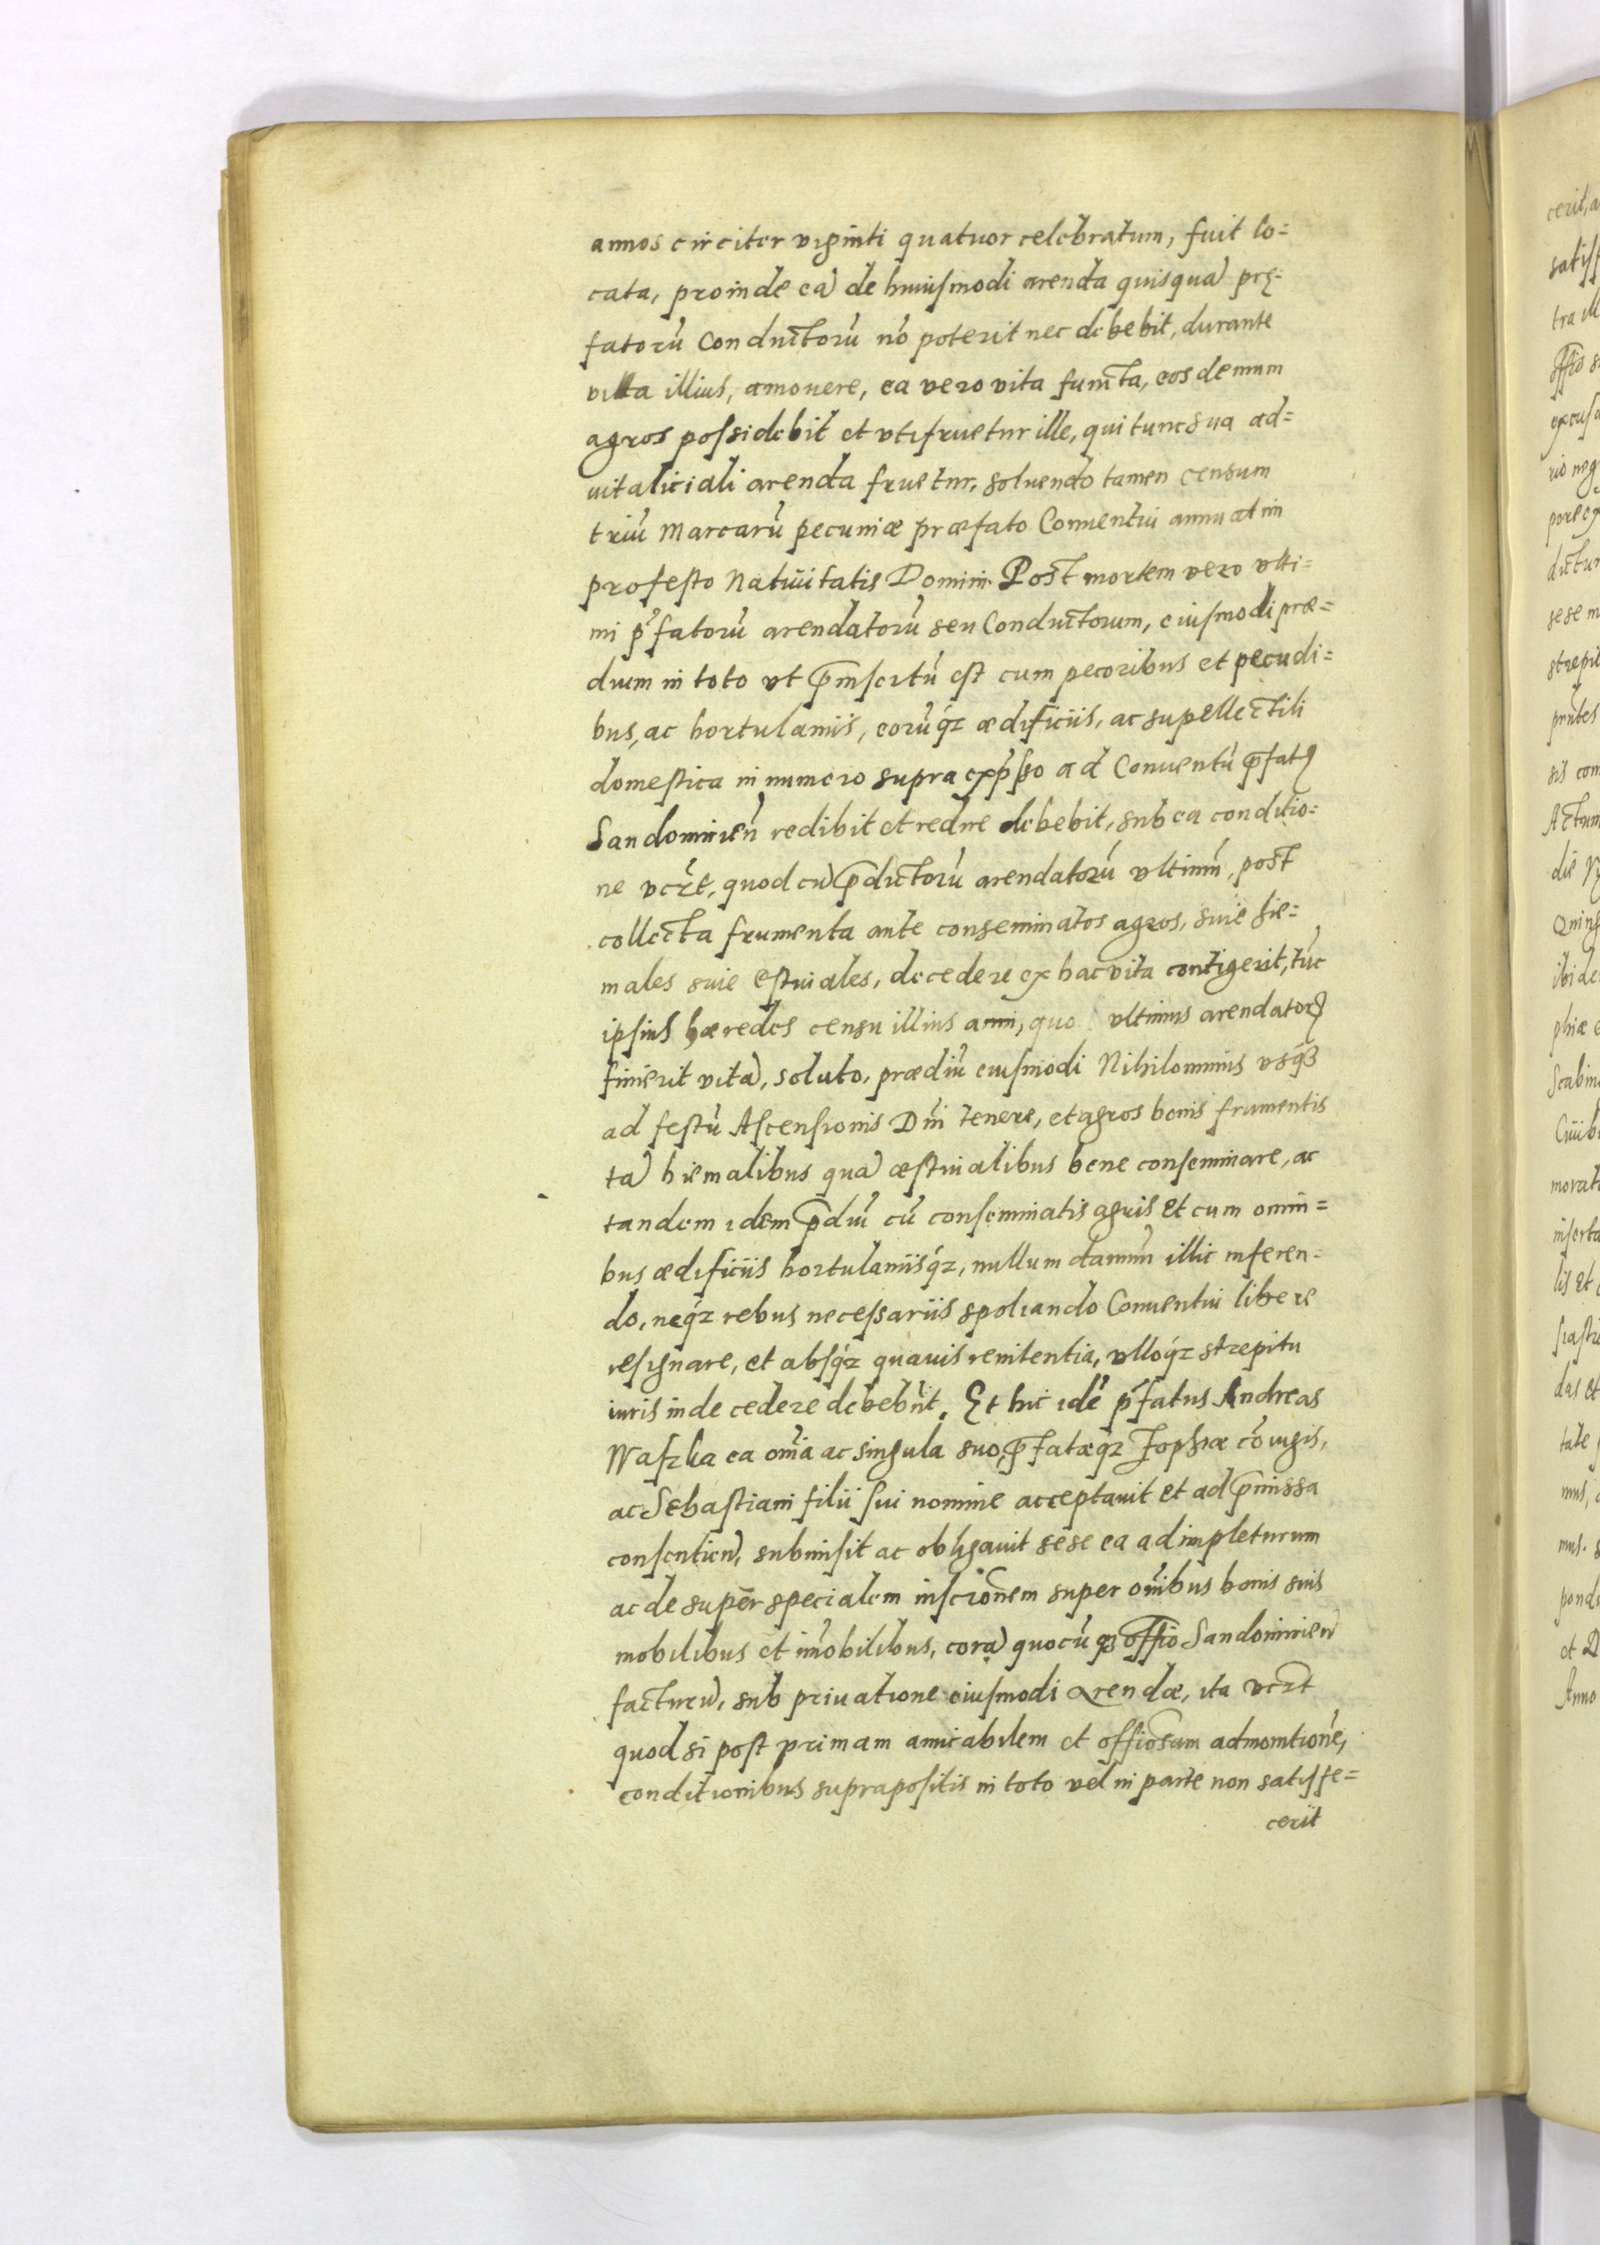 annos circiter viginti quatuor celebratum, fuit lo=
cata, proinde eã de huiusmodi arenda quisquã prę=
fatorũ Conductorũ nõ poterit nec debebit, durante
vita illius, amouere, ea vero vita functa, eos demum
agros possidebit et vtifruetur ille, qui tunc sua ad=
uitaliciali arenda fruetur, soluendo tamen censum
triũ Marcarũ pecuniæ præfato Conuentui annuatim
profesto Natiuitatis Domini. Post mortem vero vlti=
mi p̃fatorũ arendatorũ seu Conductorum, eiusmodi præ=
dium in toto vt p̃insertũ est cum pecoribus et pecudi=
bus, ac hortulaniis, eorũq́z ædificiis, ac supellectili
domestica in numero supra exp̃sso ad Conuentũ p̃fatũ
Sandomirieñ redibit et redire debebit, sub ea conditio=
ne vcz̃t, quod cũ p̃dictorũ arendatorũ vltimũ, post
collecta frumenta ante conseminatos agros, siue hie=
males siue estiuales, decedere ex hac vita contigerit, tũc
ipsius hæredes censu illius anni, quo vltimus arendatorũ
finierit vitã, soluto, prædiũ eiusmodi Nihilominus vsq́3
ad festũ Ascensionis Dñi tenere, et agros bonis frumentis
tã hiemalibus quã æstiualibus bene conseminare, ac
tandem idem p̃diũ cũ conseminatis agris et cum omni=
bus ædificiis hortulaniisq́z, nullum damnũ illic inferen=
do, neq́z rebus necessariis spoliando Conuentui libere
resignare, et absq́z quauis renitentia, vlloq́z strepitu
iuris inde cedere debebũt. Et hic idẽ p̃fatus Andreas
Waszka ea om̃ia ac singula suo, p̃fatæq́z Zophiæ cõiugis,
ac Sebastiani filii sui nomine acceptauit et ad p̃missa
consentieñ, submisit ac obligauit sese ea adimpleturum
ac desuper specialem inscr̃onem super om̃ibus bonis suis
mobilibus et im̃obilibus, corã quocũq3 offi͠o Sandomirieñ
facturũ, sub priuatione eiusmodi Arendæ, ita vcz̃t
quod si post primam amicabilem et offi͠osam admonitionẽ,
conditionibus suprapositis in toto vel in parte non satisfe=
cerit